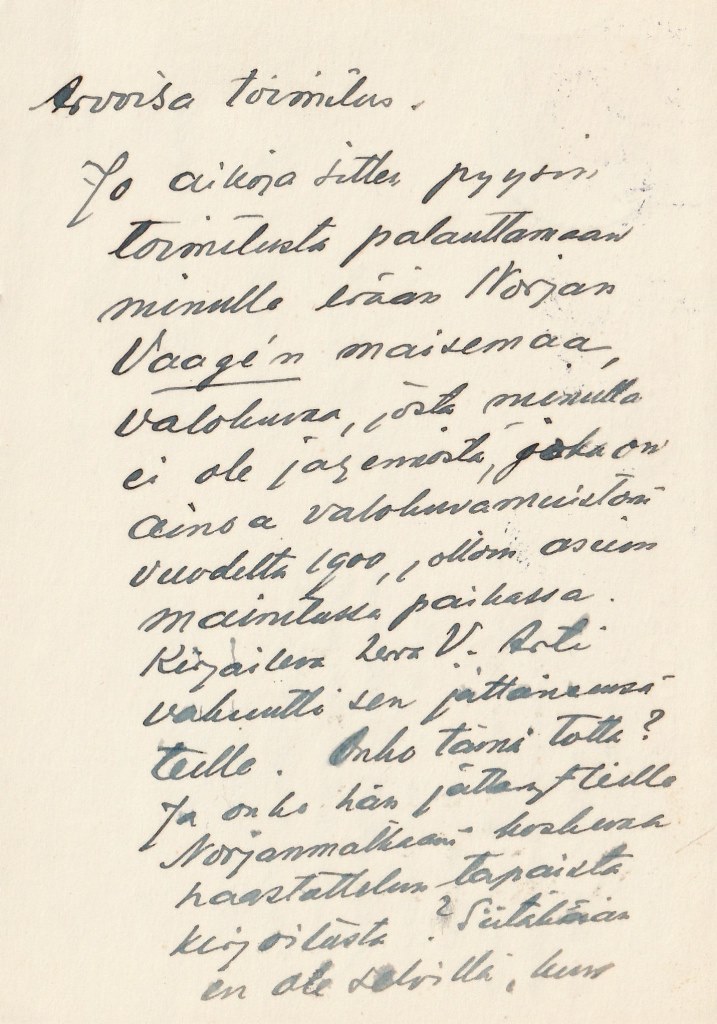 Arvoisa toimitus.
Jo aikoja sitten pyysin
toimitusta palauttamaan
minulle erään Norjan
Vaage'n maisemaa,
valokuvaa, josta minulla
ei ole jäljennöstä, joka on
ainoa valokuvamuistoni
vuodelta 1900, jolloin asuin
mainitussa paikassa.
Kirjaileva herra V. Arti
vakuutti sen jättäneensä
teille. Onko tämä totta?
Ja onko hän jättänyt teille
Norjanmatkaani koskevaa
haastattelun tapaista
kirjoitusta? Siitäkään
en ole selvillä, kun